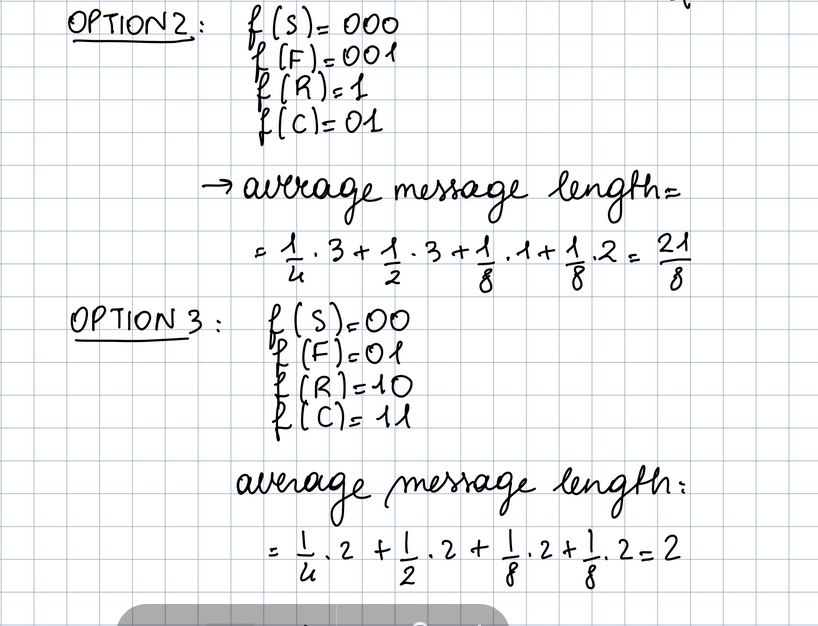 OPTION 2: f(S)= 000
f(F)=001
f(R)=1
f(C)=01
→ average message length=
= 1/4 · 3 + 1/2 · 3 + 1/8 · 1 + 1/8 · 2 = 21/8
OPTION 3: f(S)=00
f(F)=01
f(R)=10
f(C)= 11
average message length:
= 1/4 · 2 + 1/2 · 2 + 1/8 · 2 + 1/8 · 2 = 2